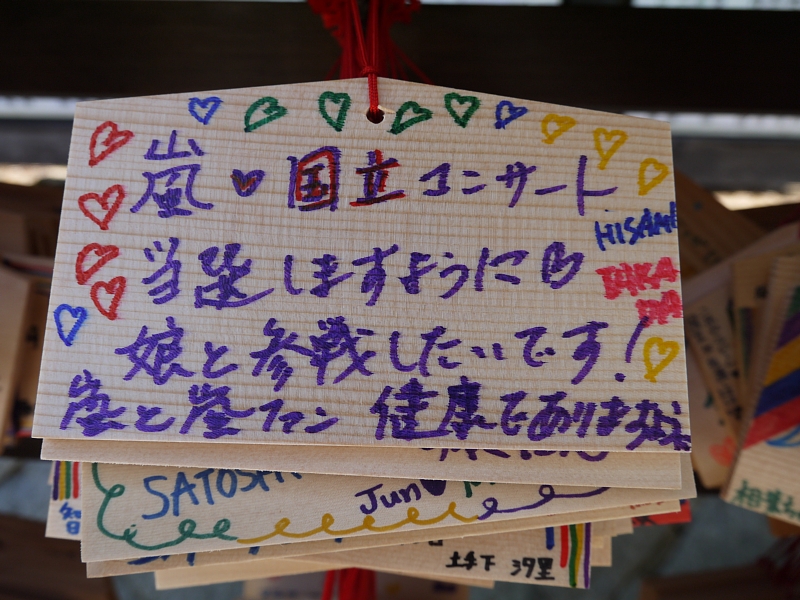 嵐♥国立コンサート
当選しますように♡
娘と参戦したいです!
嵐と嵐ファン 健康でありますように
HISAMI
SATOSHI
Jun♥
土手下 汐里